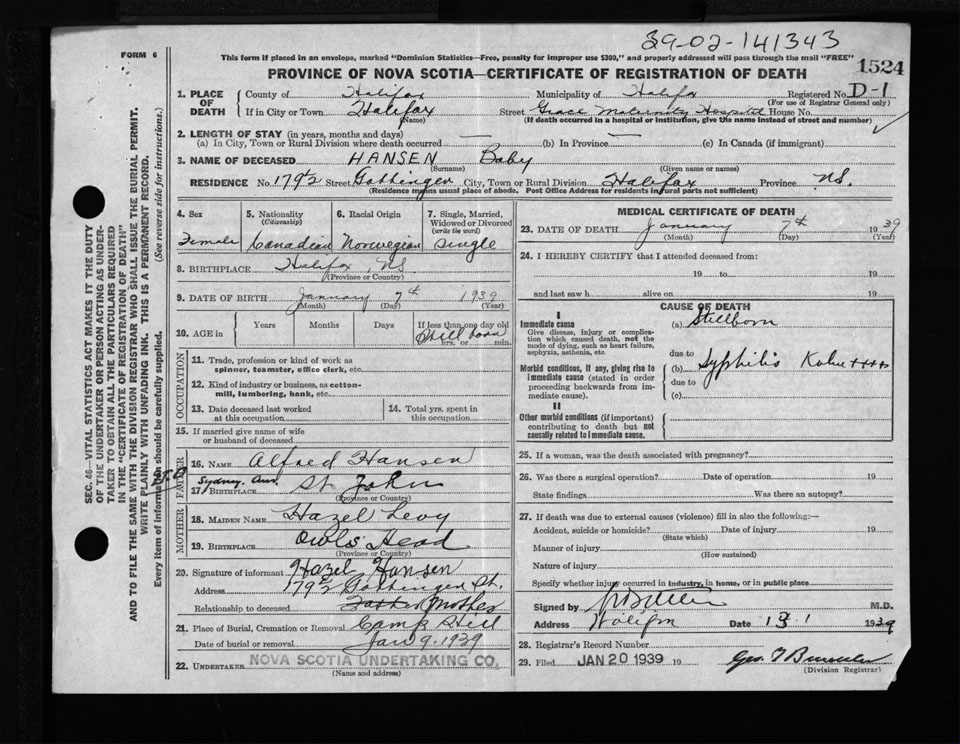 39-02-141343
FORM 6
This form if placed in an envelope, marked "Dominion Statistics—Free, penalty for improper use $300," and properly addressed will pass through the mail "FREE"
1524
PROVINCE OF NOVA SCOTIA—CERTIFICATE OF REGISTRATION OF DEATH
1. PLACE OF DEATH County of Halifax Municipality of Halifax Registered No. D-1
(For use of Registrar General only)
If in City or Town Halifax Street Grace Maternity Hospital House No.
(Name) (If death occurred in a hospital or institution, give the name instead of street and number)
2. LENGTH OF STAY (in years, months and days)
(a) In City, Town or Rural Division where death occurred — (b) In Province — (c) In Canada (if immigrant)
3. NAME OF DECEASED HANSEN Baby
(Surname) (Given name or names)
RESIDENCE No. 179½ Street Gottingen City, Town or Rural Division Halifax Province N.S.
(Residence means usual place of abode. Post Office Address for residents in rural parts not sufficient)
4. Sex 5. Nationality (Citizenship) 6. Racial Origin 7. Single, Married, Widowed or Divorced (write the word)
Female Canadian Norwegian single
8. BIRTHPLACE Halifax, N.S.
(Province or Country)
9. DATE OF BIRTH January 7th 1939
(Month) (Day) (Year)
10. AGE in Years Months Days If less than one day old
Still born
hrs. or min.
OCCUPATION
11. Trade, profession or kind of work as spinner, teamster, office clerk, etc.
12. Kind of industry or business, as cotton-mill, lumbering, bank, etc.
13. Date deceased last worked at this occupation
14. Total yrs. spent in this occupation
15. If married give name of wife or husband of deceased
FATHER
16. NAME Alfred Hansen
Sydney. Aus.
17. BIRTHPLACE St John
(Province or Country)
MOTHER
18. MAIDEN NAME Hazel Levy
19. BIRTHPLACE Owls Head
(Province or Country)
20. Signature of informant Hazel Hansen
Address 179½ Gottingen St.
Relationship to deceased Mother
21. Place of Burial, Cremation or Removal Camp Hill
Date of burial or removal Jan 9. 1939
22. UNDERTAKER NOVA SCOTIA UNDERTAKING CO.
(Name and address)
MEDICAL CERTIFICATE OF DEATH
23. DATE OF DEATH January 7th 1939
(Month) (Day) (Year)
24. I HEREBY CERTIFY that I attended deceased from:
19 to 19
and last saw h alive on 19
CAUSE OF DEATH
I
Immediate cause
Give disease, injury or complication which caused death, not the mode of dying, such as heart failure, asphyxia, asthenia, etc.
(a) Stillborn
due to
Morbid conditions, if any, giving rise to immediate cause (stated in order proceeding backwards from immediate cause).
(b) Syphilis Kahn ++++
due to
(c)
II
Other morbid conditions (if important) contributing to death but not causally related to immediate cause.
25. If a woman, was the death associated with pregnancy?
26. Was there a surgical operation? Date of operation 19
State findings Was there an autopsy?
27. If death was due to external causes (violence) fill in also the following:—
Accident, suicide or homicide? Date of injury 19
(State which)
Manner of injury
(How sustained)
Nature of injury
Specify whether injury occurred in industry, in home, or in public place
Signed by M.D.
Address Halifax Date 13 1 1939
28. Registrar's Record Number
29. Filed JAN 20 1939 19 Geo. T
(Division Registrar)
SEC. 46—VITAL STATISTICS ACT MAKES IT THE DUTY
OF THE UNDERTAKER OR PERSON ACTING AS UNDER-
TAKER TO OBTAIN ALL THE PARTICULARS REQUIRED
IN THE "CERTIFICATE OF REGISTRATION OF DEATH"
AND TO FILE THE SAME WITH THE DIVISION REGISTRAR WHO SHALL ISSUE THE BURIAL PERMIT.
WRITE PLAINLY WITH UNFADING INK. THIS IS A PERMANENT RECORD.
Every item of information should be carefully supplied. (See reverse side for instructions.)